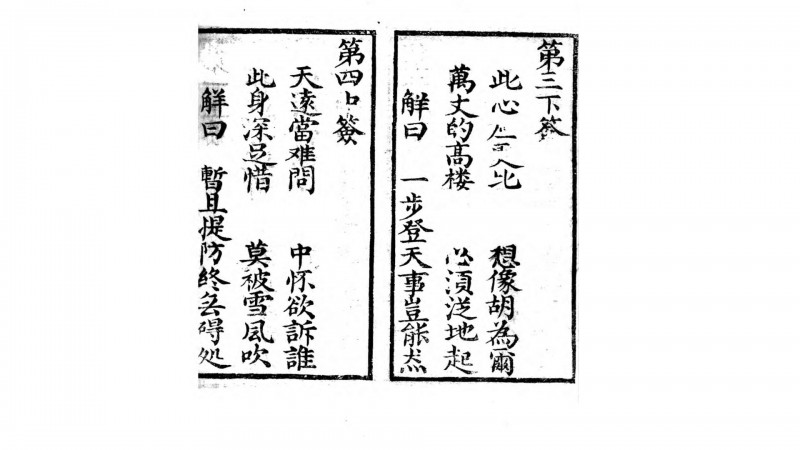 第三下签
此心 想像胡為爾
萬丈的高楼 必須从地起
解曰 一步登天事豈能
第四 簽
天遠當难問 中怀欲訴誰
此身深足惜 莫被雪風吹
解曰 暫且提防終无碍处